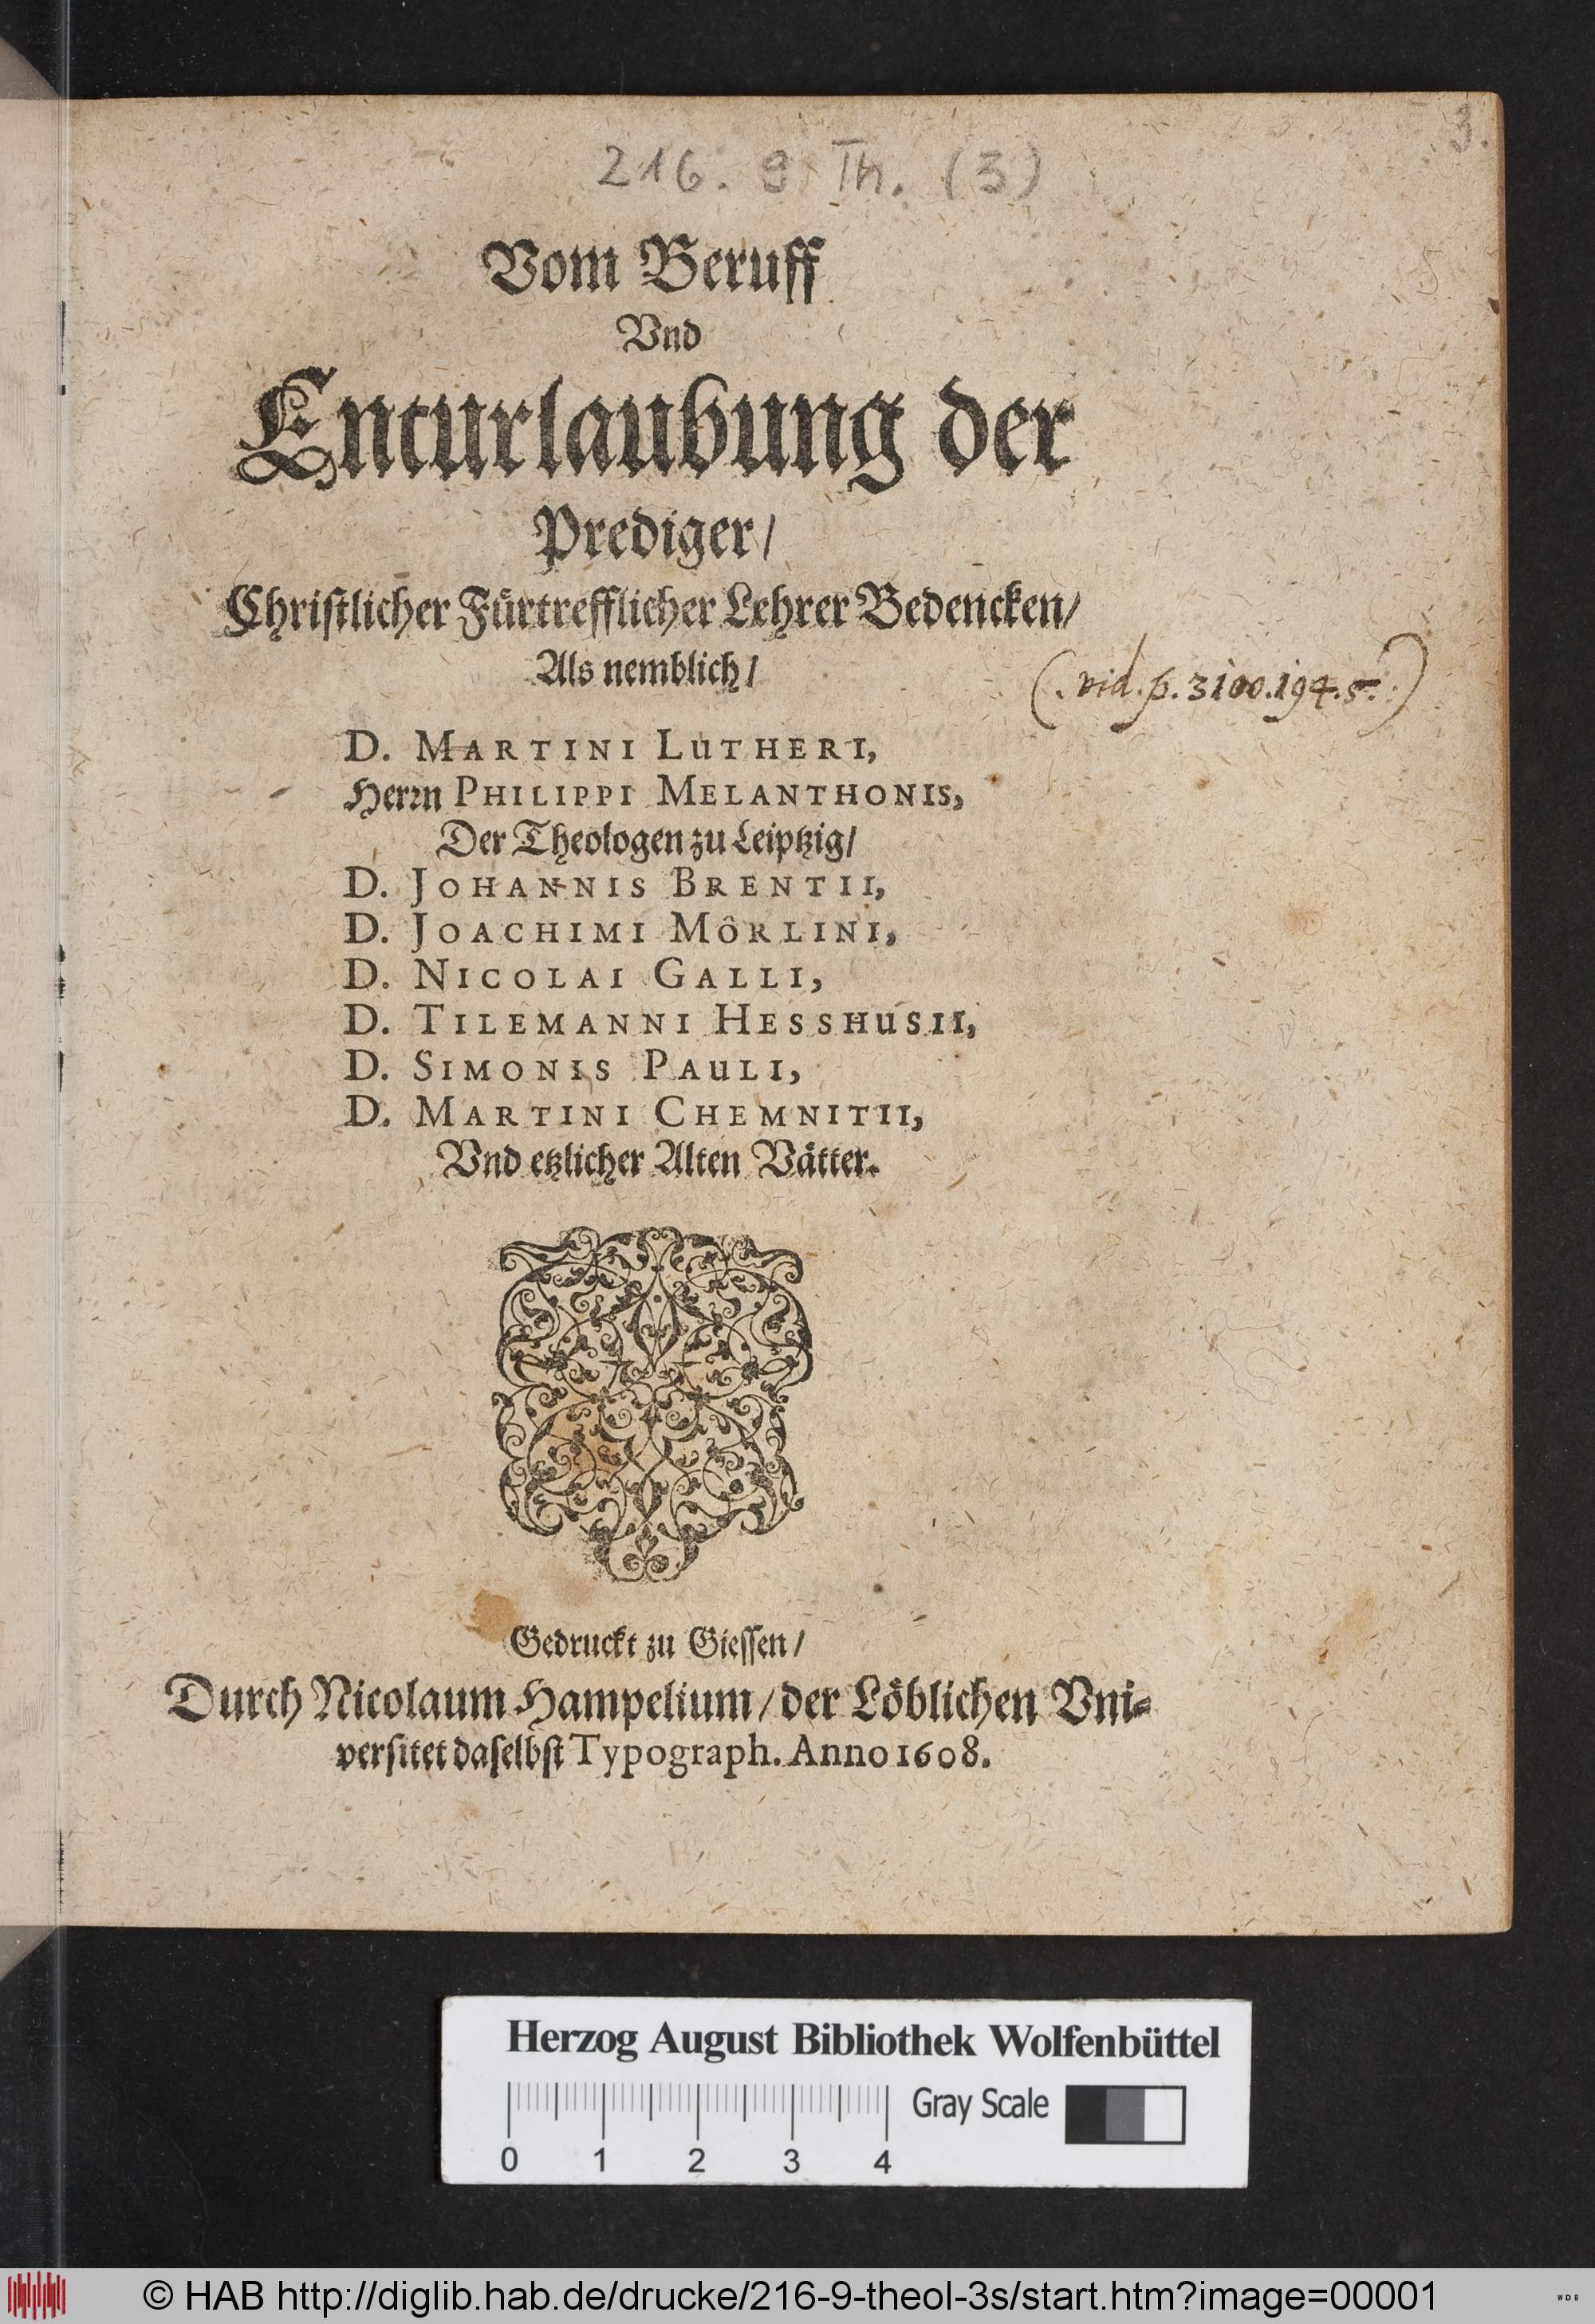 3.
216. 9 Th. (3)
Vom Beruff
Vnd
Enturlaubung der
Prediger/
Christlicher Fürtrefflicher Lehrer Bedencken/
Als nemblich/
(. vid. p. 3100.194.5.)
D. MARTINI LUTHERI,
Herrn PHILIPPI MELANTHONIS,
Der Theologen zu Leiptzig/
D. JOHANNIS BRENTII,
D. JOACHIMI MÔRLINI,
D. NICOLAI GALLI,
D. TILEMANNI HESSHUSII,
D. SIMONIS PAULI,
D. MARTINI CHEMNITII,
Vnd etzlicher Alten Vätter.
Gedruckt zu Giessen/
Durch Nicolaum Hampelium/ der Löblichen Vni-
versitet daselbst Typograph. Anno 1608.
Herzog August Bibliothek Wolfenbüttel
Gray Scale
0 1 2 3 4
© HAB http://diglib.hab.de/drucke/216-9-theol-3s/start.htm?image=00001
WDB